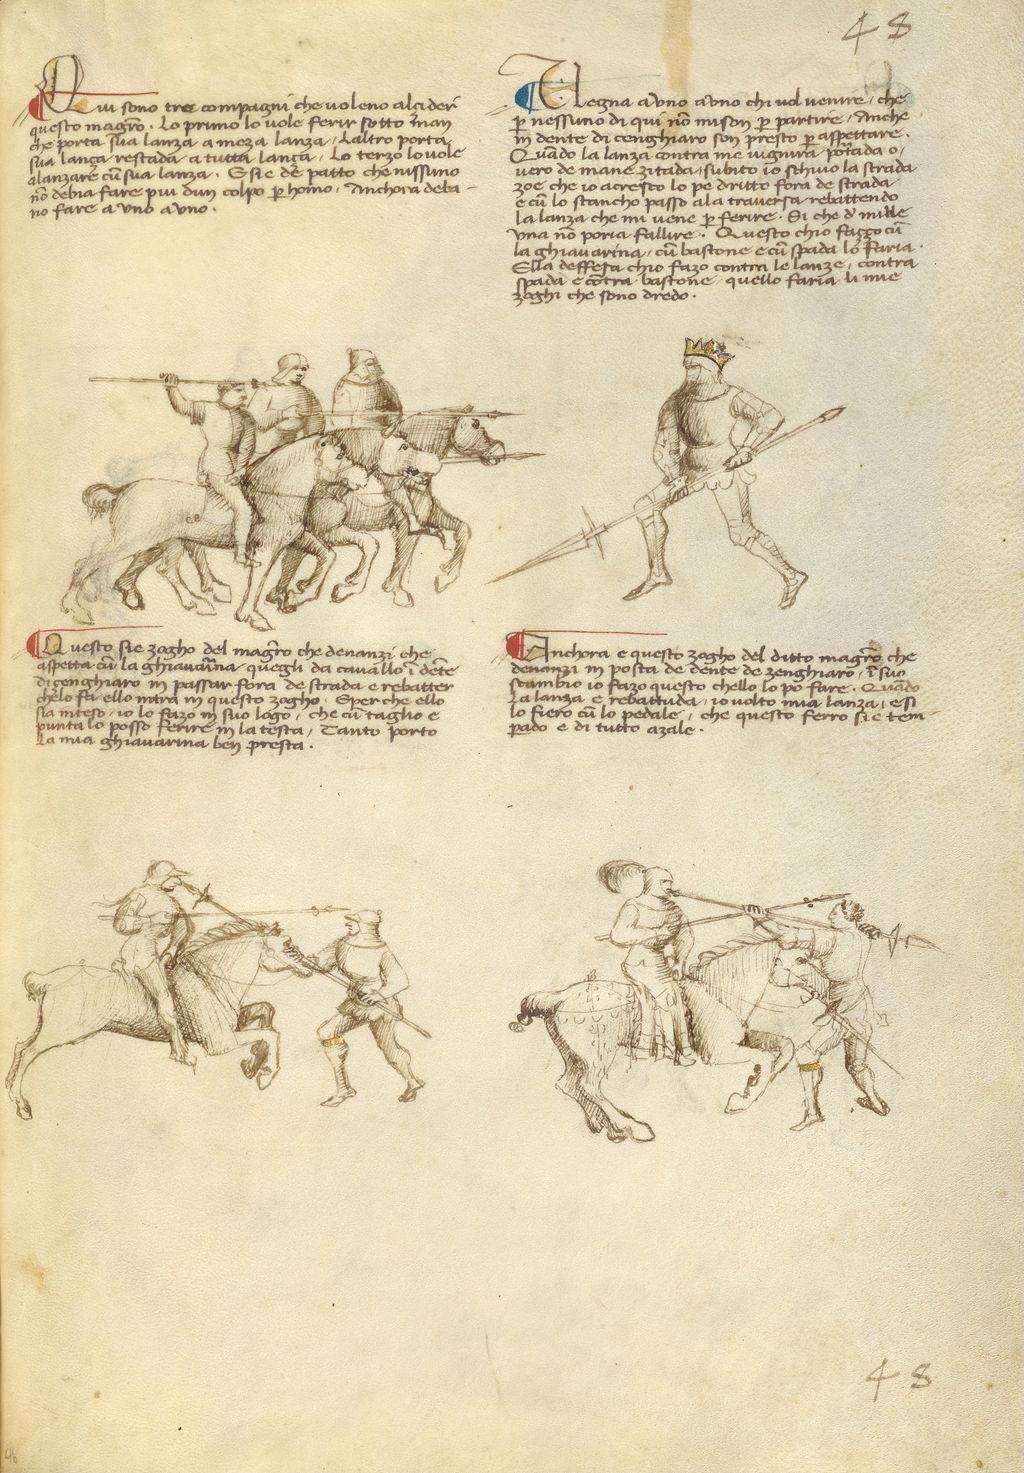 48
Qui sono tre compagni che voleno alcider
questo magro. Lo primo lo vole ferir sotto man
che porta sua lanza a meza lanza, Laltro porta
sua lança restada a tutta lança, Lo terzo lo vole
alanzare cũ sua lanza. Ssi e de patto che nissuno
nõ debia fare piu dun colpo p homo, Anchora deba-
no fare a uno a uno.
Uegna a uno a uno chi vol venire, che
p nessuno di qui nõ mison p partire, Anche
in dente di cenghiaro son presto p aspettare.
Quãdo la lanza contra me vignira portada o,
vero de mane zitada, subito io schivo la strada
zoe che io acresco lo pe dritto fora de strada
e cũ lo stancho passo ala traversa rebattendo
la lanza che mi vene p ferire. Si che d' mille
una nõ poria fallire. Questo chio fazzo cũ
la ghiavarina, cũ bastone e cũ spada lo faria.
Ella deffesa chio fazo contra le lanze, contra
spada e cõtra bastone, quello faria li mie
zoghi che sono dredo.
Questo sie zogho del magro che denanzi che
aspetta cũ la ghiavarina quegli da cavallo ĩ dẽte
di cenghiaro in passar fora de strada e rebatter
chelo fa, ello intra in questo zogho. Sperche ello
sia inteso, io lo fazo in suo logo, che cũ taglio e
punta lo posso ferire in la testa, Tanto porto
La mia ghiavarina ben presta.
Anchora e questo zogho del ditto magro che
denanzi in posta de dente de zenghiaro, ĩ suo
scambio io fazo questo chello lo po fare. Quãdo
La lanza e rebattuda, io volto mia lanza, e si
lo fiero cũ lo pedale, che questo ferro sie tem-
perado e di tutto azale.
48